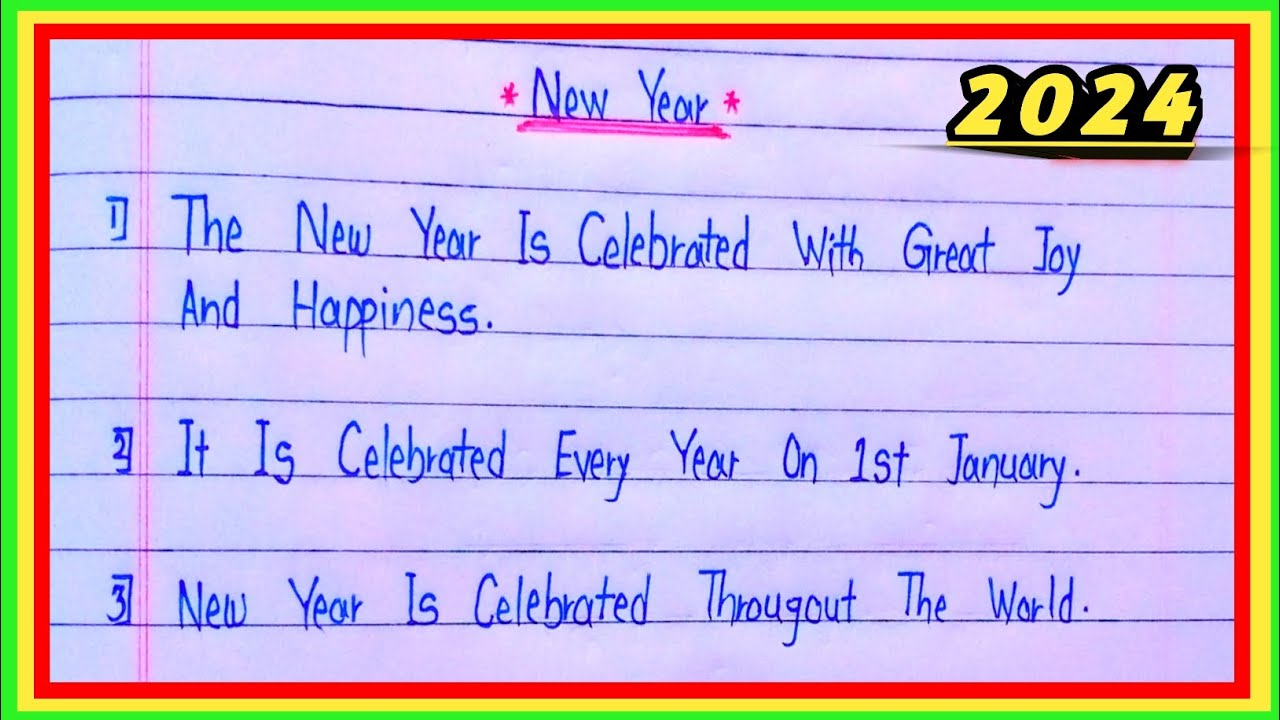 * New Year *
2024
1] The New Year Is Celebrated With Great Joy
And Happiness.
2] It Is Celebrated Every Year On 1st January.
3] New Year Is Celebrated Througout The World.